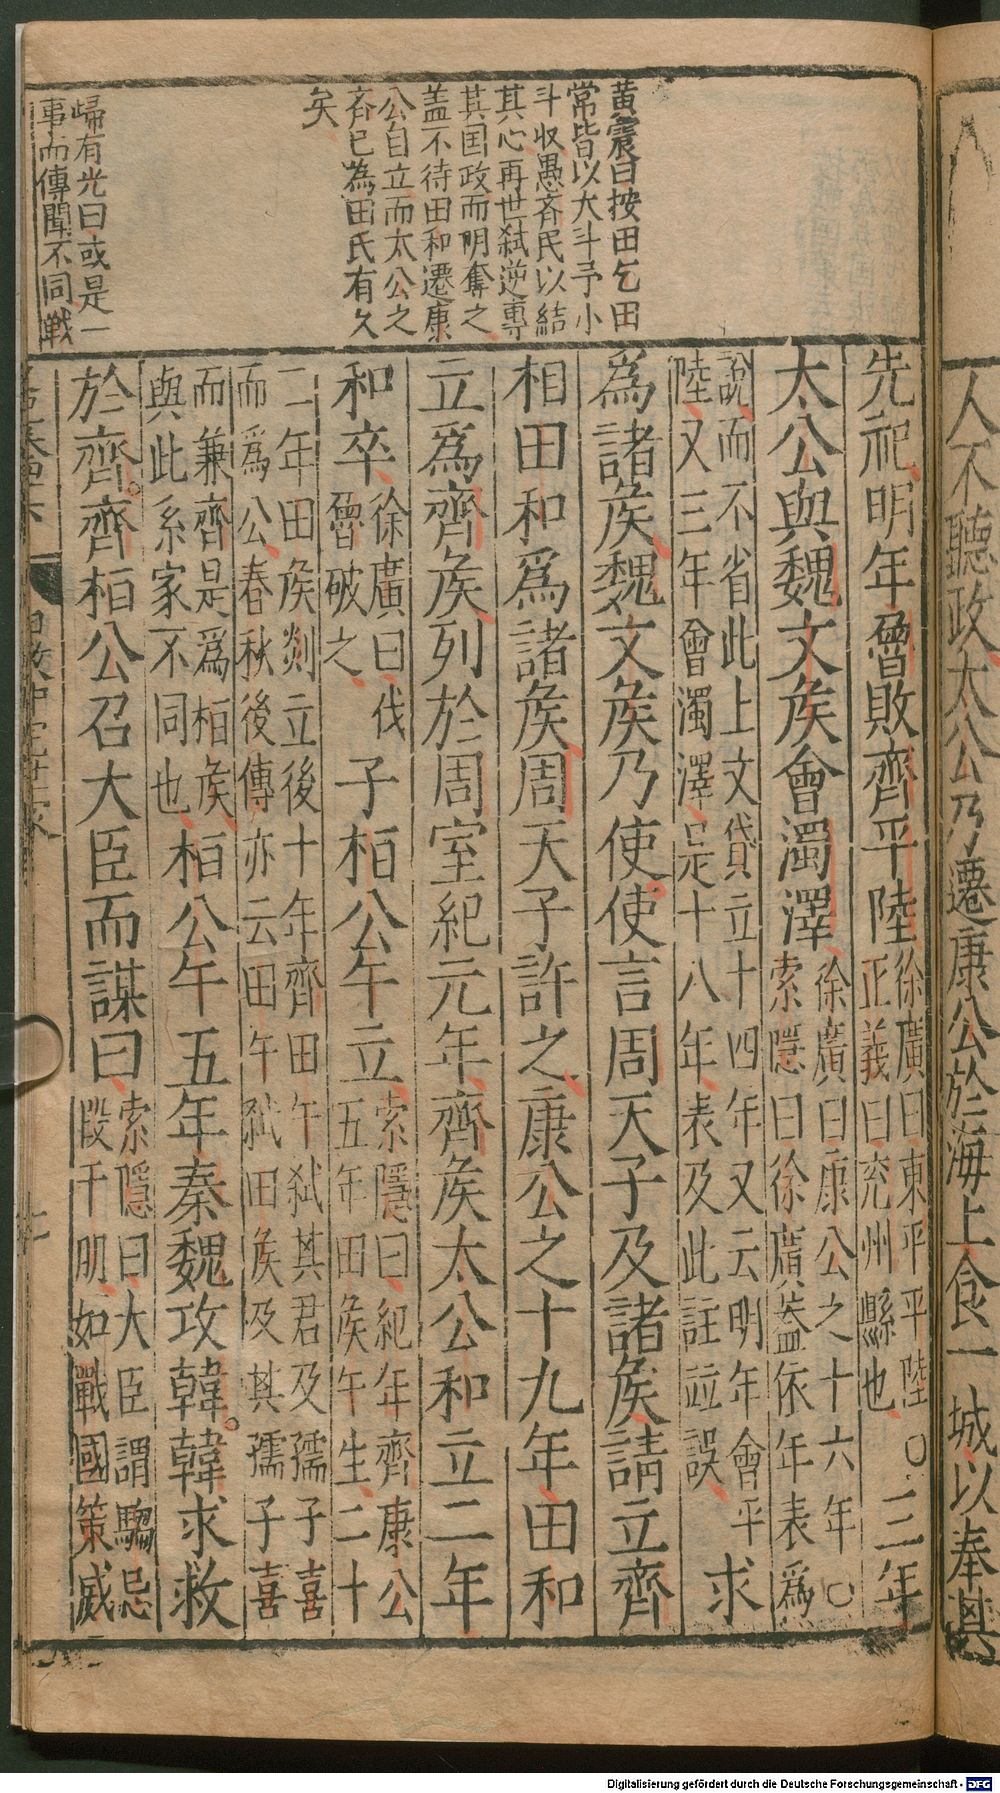 人不聽政太公乃遷康公於海上食一城以奉其
黃震曰按田乞田
常皆以大斗予小
斗收愚齊民以結
其心再世弑逆專
其国政而明奪之
盖不待田和遷康
公自立而太公之
齊已為田氏有久
矣
歸有光曰或是一
事而傳聞不同戰
先祀明年魯敗齊平陸
徐廣曰東平平陸〇
正義曰兖州縣也
三年
太公與魏文矦會濁澤
徐廣曰康公之十六年〇
索隱曰徐廣蓋依年表爲
說而不省此上文貸立十四年又云明年會平
陸又三年會濁澤是十八年表及此註並誤
求
爲諸矦魏文矦乃使使言周天子及諸矦請立齊
相田和爲諸矦周天子許之康公之十九年田和
立爲齊矦列於周室紀元年齊矦太公和立二年
和卒
徐廣曰伐
魯破之
子桓公午立
索隱曰紀年齊康公
五年田矦午生二十
二年田矦剡立後十年齊田午弑其君及孺子喜
而爲公春秋後傳亦云田午弑田矦及其孺子喜
而兼齊是爲桓矦
與此系家不同也
桓公午五年秦魏攻韓韓求救
於齊齊桓公召大臣而謀曰
索隱曰大臣謂騶忌
段干朋如戰國策威
Digitalisierung gefördert durch die Deutsche Forschungsgemeinschaft - DFG